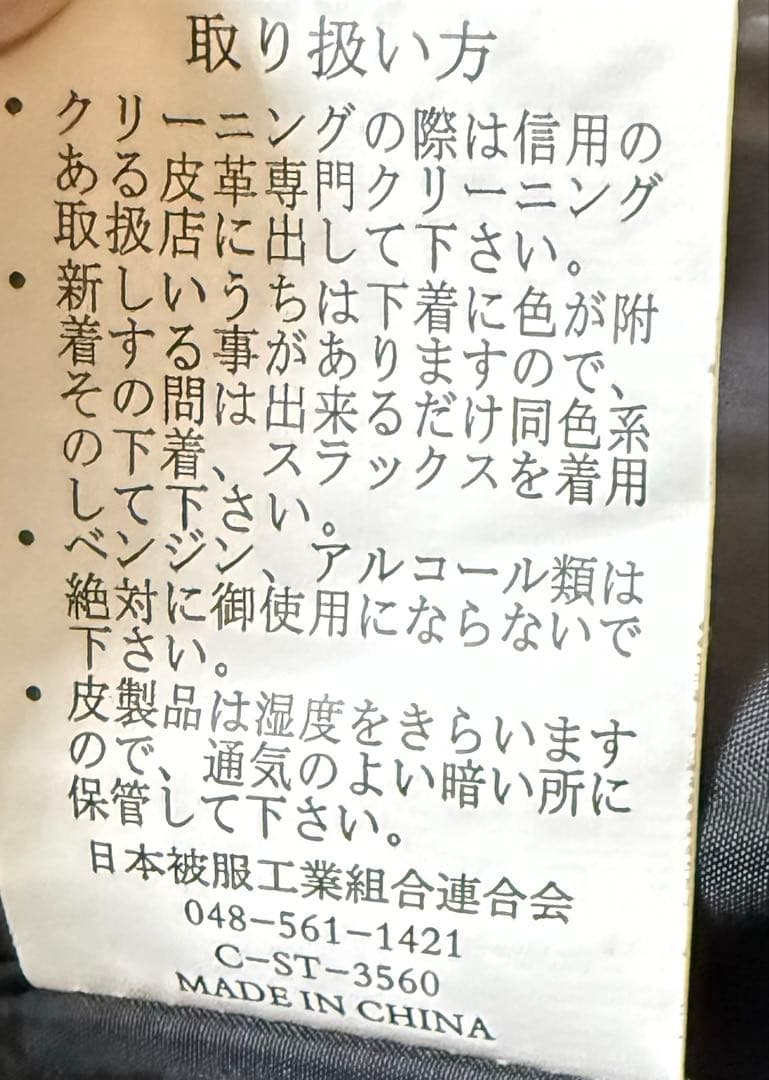 取り扱い方
・クリーニングの際は信用の
ある皮革専門クリーニング
取扱店に出して下さい。
・新しいうちは下着に色が附
着する事がありますので、
その間は出来るだけ同色系
の下着、スラックスを着用
して下さい。
・ベンジン、アルコール類は
絶対に御使用にならないで
下さい。
・皮製品は湿度をきらいます
ので、通気のよい暗い所に
保管して下さい。
日本被服工業組合連合会
048-561-1421
C-ST-3560
MADE IN CHINA